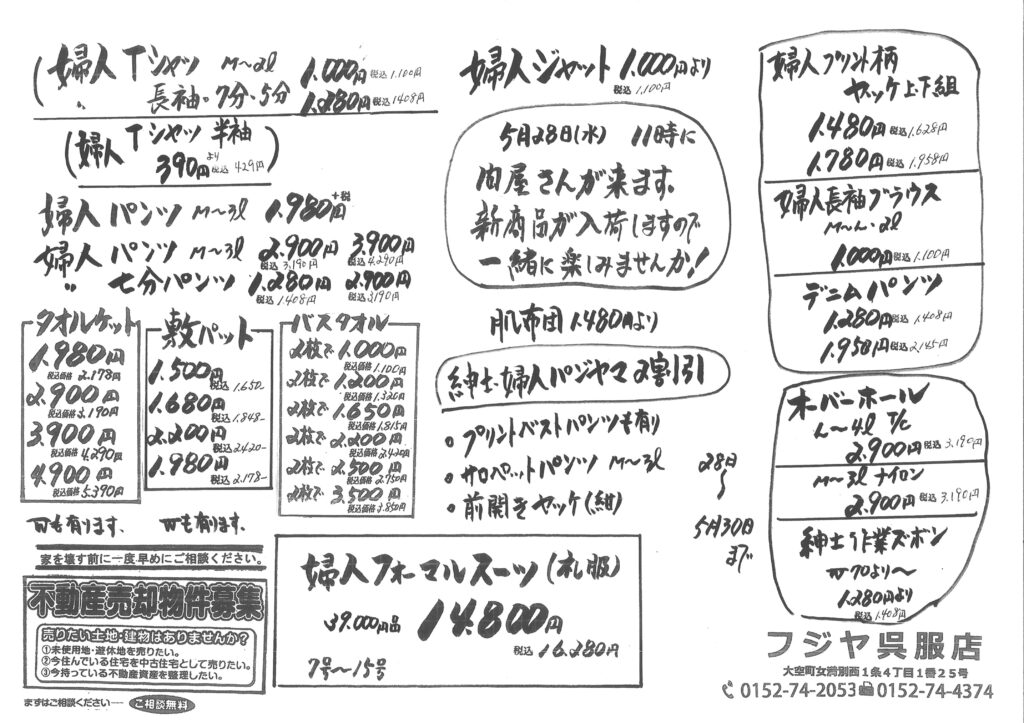 婦人Tシャツ M〜2l 1.000円 税込 1.100円
〃 長袖・7分・5分 1.280円 税込 1408円
婦人Tシャツ 半袖
390円より 税込 429円
婦人パンツ M〜3l 1.980円+税
婦人パンツ M〜3l 2.900円 税込 3.190円 3.900円 税込 4.290円
〃 七分パンツ 1.280円 税込 1.408円 2.900円 税込 3.190円
タオルケット
1.980円
税込価格 2.178円
2.900円
税込価格 3.190円
3.900円
税込価格 4.290円
4.900円
税込価格 5.390円
敷パット
1.500円
税込 1.650-
1.680円
税込 1.848-
2.200円
税込 2.420-
1.980円
税込 2.178-
バスタオル
2枚で 1.000円
税込価格 1.100円
2枚で 1.200円
税込価格 1.320円
2枚で 1.650円
税込価格 1.815円
2枚で 2.200円
税込価格 2.420円
2枚で 2.500円
税込価格 2.750円
2枚で 3.500円
税込価格 3.850円
も有ります、
も有ります、
家を壊す前に一度、早めにご相談ください。
不動産売却物件募集
売りたい土地・建物はありませんか?
①未使用地・遊休地を売りたい。
②今住んでいる住宅を中古住宅として売りたい。
③今持っている不動産資産を整理したい。
まずはご相談ください── ご相談無料
婦人ジャット 1.000円より
税込 1.100円
5月28日(水) 11時に
問屋さんが来ます。
新商品が入荷しますので
一緒に楽しみませんか!
肌布団 1.480円より
紳士・婦人パジャマ 2割引
。プリントベストパンツも有り
。サロペットパンツ M〜3l
。前開きヤッケ(紺)
28日
〜
5月30日
まで
婦人フォーマルスーツ(礼服)
39.000円品 14.800円
税込 16.280円
7号〜15号
婦人プリント柄
ヤッケ上下組
1.480円 税込 1.628円
1.780円 税込 1.958円
婦人長袖ブラウス
M〜L・2l
1.000円 税込 1.100円
デニムパンツ
1.280円 税込 1.408円
1.950円 税込 2.145円
オーバーホール
L〜4l T/C
2.900円 税込 3.190円
M〜3l ナイロン
2.900円 税込 3.190円
紳士作業ズボン
W70より〜
1.280円より
税込 1.408円
フジヤ呉服店
大空町女満別西1条4丁目1番25号
0152-74-2053 0152-74-4374